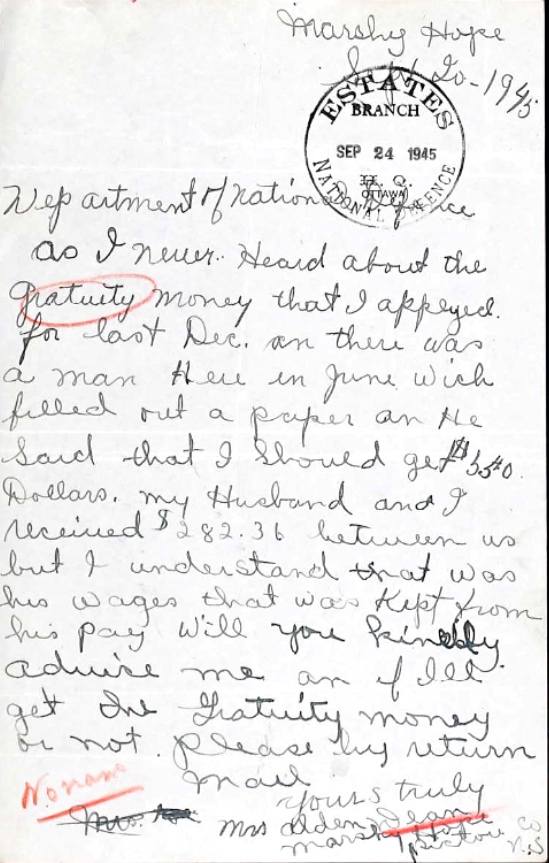 Marshy Hope
Sept 20-1945
ESTATES
BRANCH
SEP 24 1945
H. Q.
OTTAWA
NATIONAL DEFENCE
Department of National Defence
as I never Heard about the
gratuity money that I appeyed
for last Dec. an there was
a man Here in June wich
filled out a paper an He
Said that I Should get $550
Dollars. my Husband and I
received $282.36 between us
but I understand that was
his wages that was Kept from
his pay will you kindly
advise me an if Ill
get the Gratuity money
or not. please by return
mail
yours truly
Mrs alden Dean
marshy Hope
pictou co
N.S